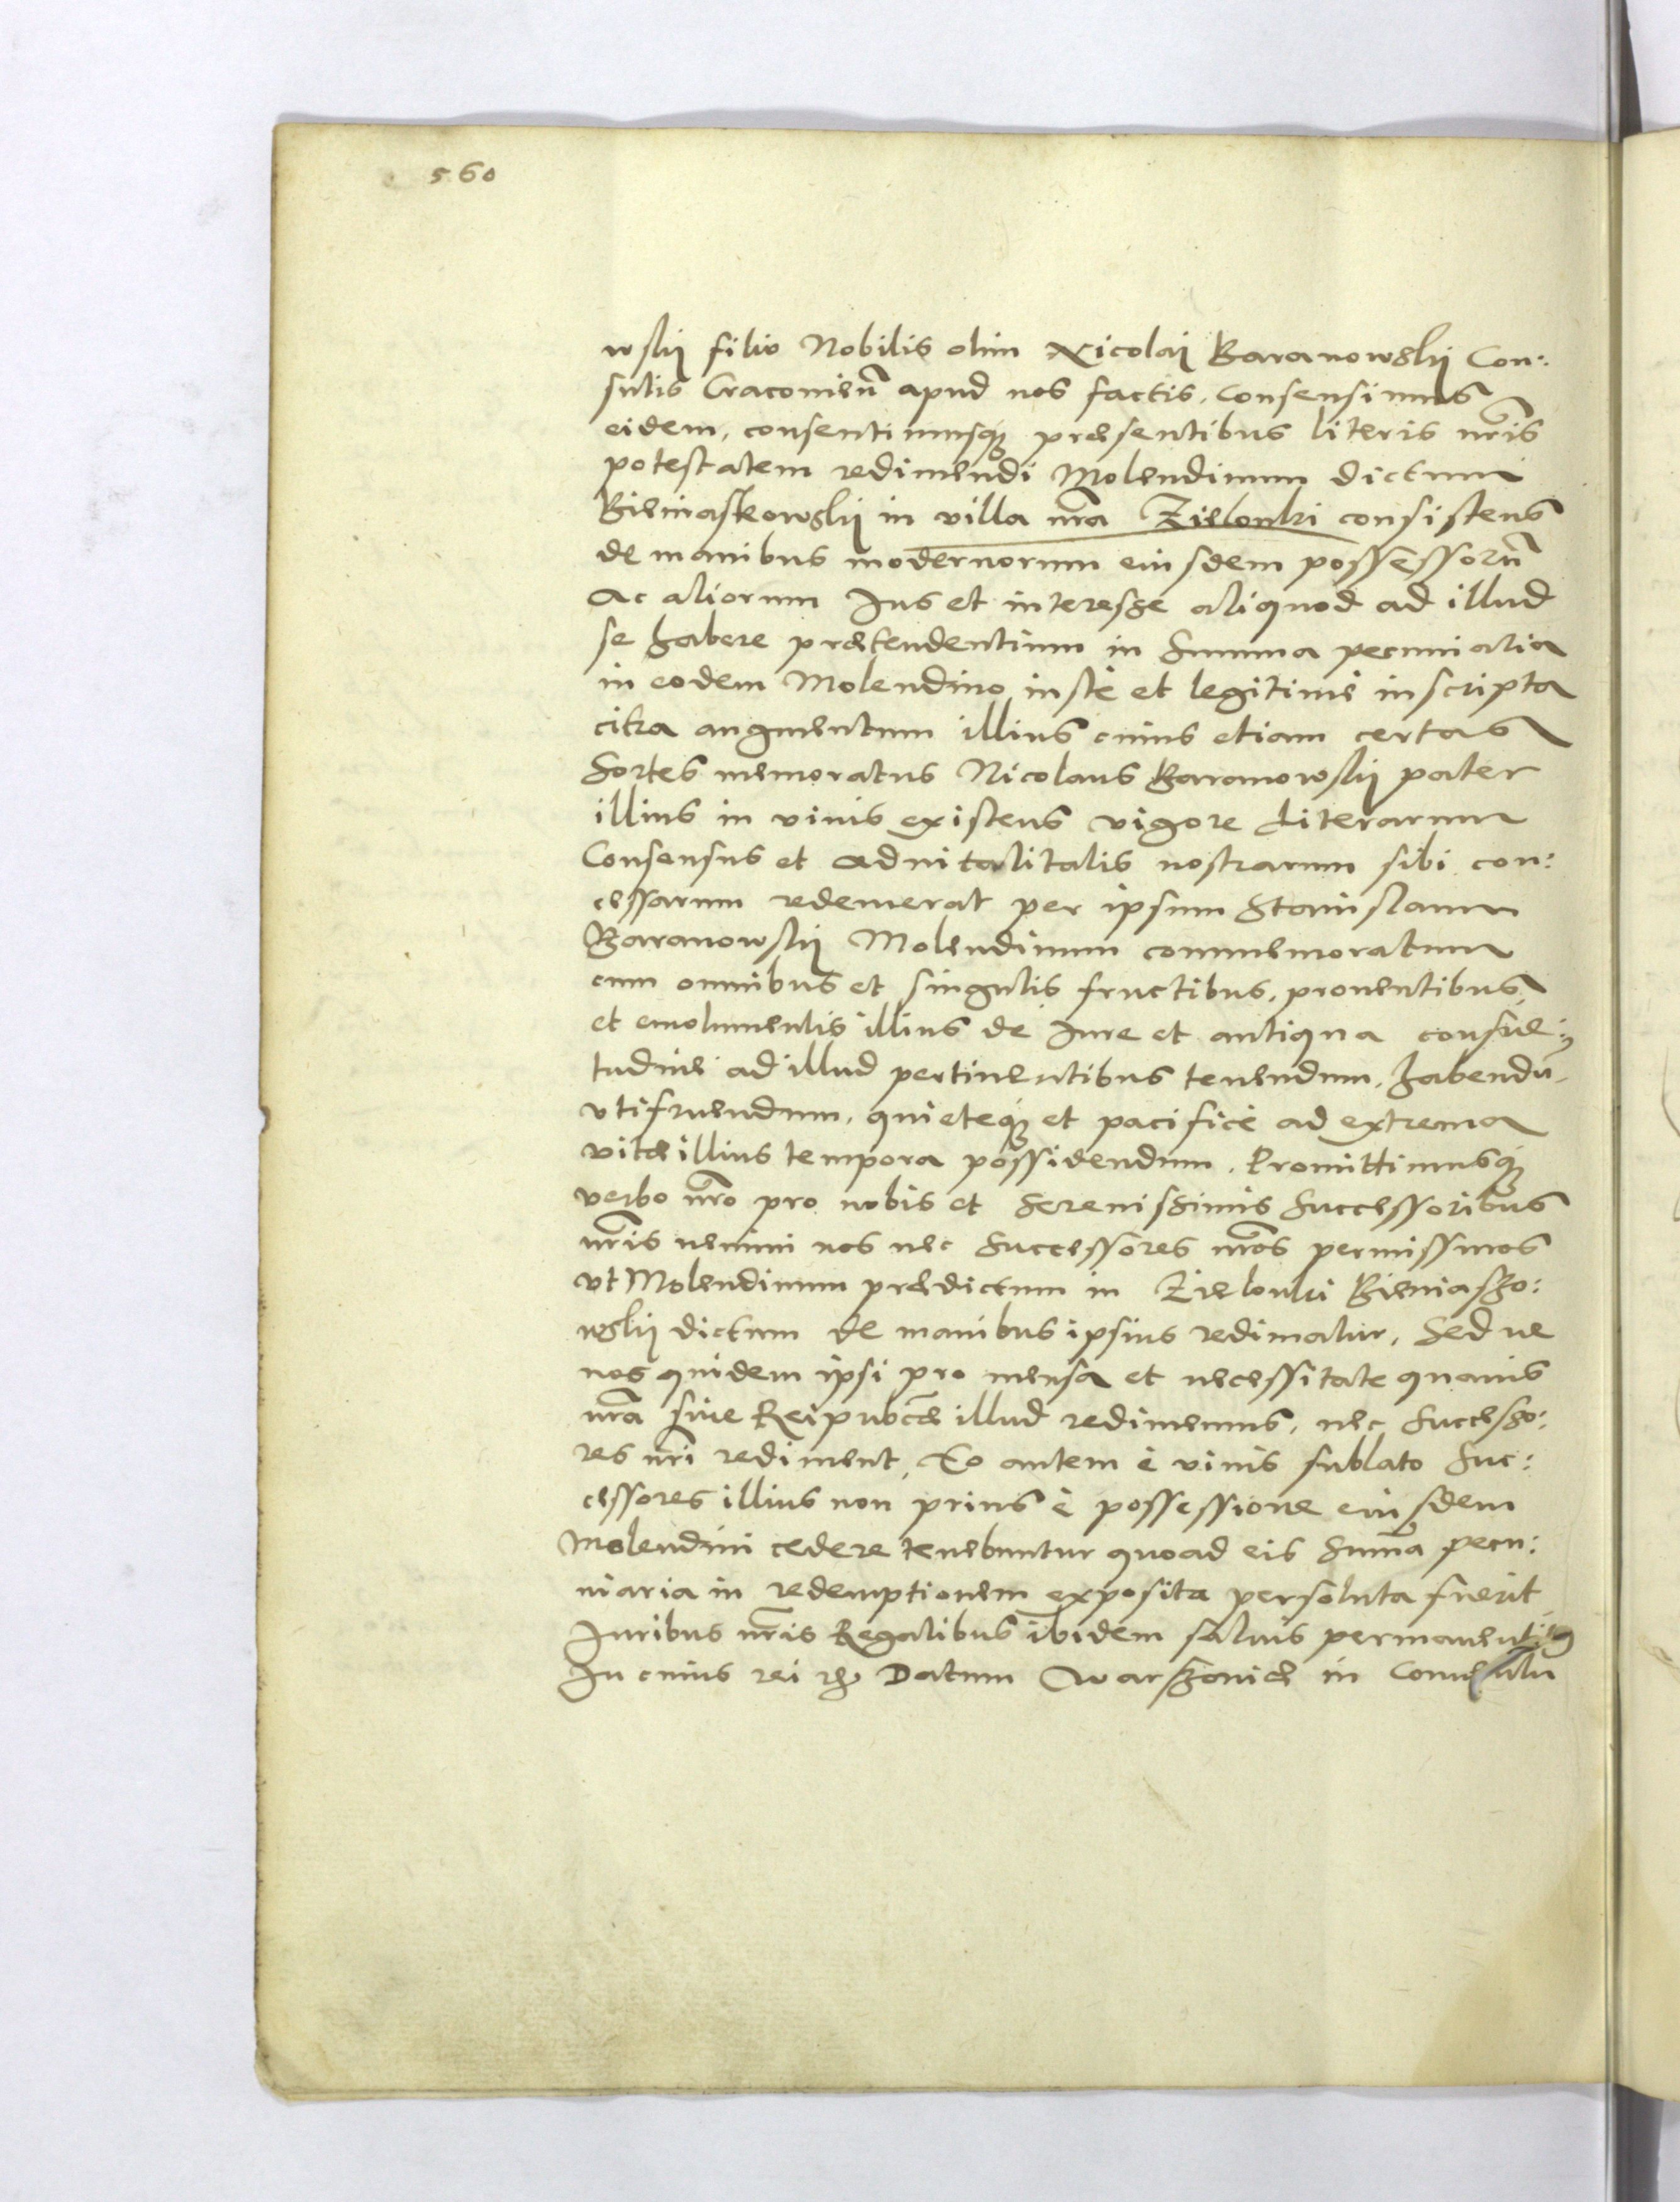 560
wskij filio Nobilis olim Nicolaij Baranowskij Con:
sulis Cracovien̄ apud nos factis. Consensimus
eidem, consentimusq̨ præsentibus literis nr̄is
potestatem redimendi Molendinum dictum
Bieniaszkowskij in villa nr̄a Zielonki consistens
de manibus modernorum eiusdem possessorū
Ac aliorum Jus et interesse aliquod ad illud
se habere prætendentium in Summa pecuniaria
in eodem Molendino iustè et legitimè inscripta
citra augmentum illius cuius etiam certas
Sortes memoratus Nicolaus Baranowskij pater
illius in vivis existens vigore Literarum
Consensus et advitalitatis nostrarum sibi con:
cessarum redemerat per ipsum Stanislaum
Baranowskij Molendinum commemoratum
cum omnibus et singulis fructibus, proventibus,
et emolumentis illius de Jure et antiqua consue:
tudine ad illud pertinentibus tenendum, habendū,
vtifruendum, quieteq̨ et pacificè ad extrema
vitæ illius tempora possidendum. Promittimusq̨
verbo nr̄o pro nobis et Serenissimis Successoribus
nr̄is nemini nos nec Successores nr̄os permissuros
vt Molendinum prædictum in Zielonki Bieniaszo:
wskij dictum de manibus ipsius redimatur, Sed ne
nos quidem ipsi pro mensa et necessitate quavis
nr̄a sive Reipub̄cæ illud redimemus, nec Successo:
res nr̄i rediment, Eo autem è vivis sublato Suc:
cessores illius non prius è possessione eiusdem
Molendini cedere tenebuntur quoad eis Sum̄a pecu:
niaria in redemptionem exposita persoluta fuerit
Juribus nr̄is Regalibus ibidem salvis permanentibus
In cuius rei Datum Warszaviæ in Conventu